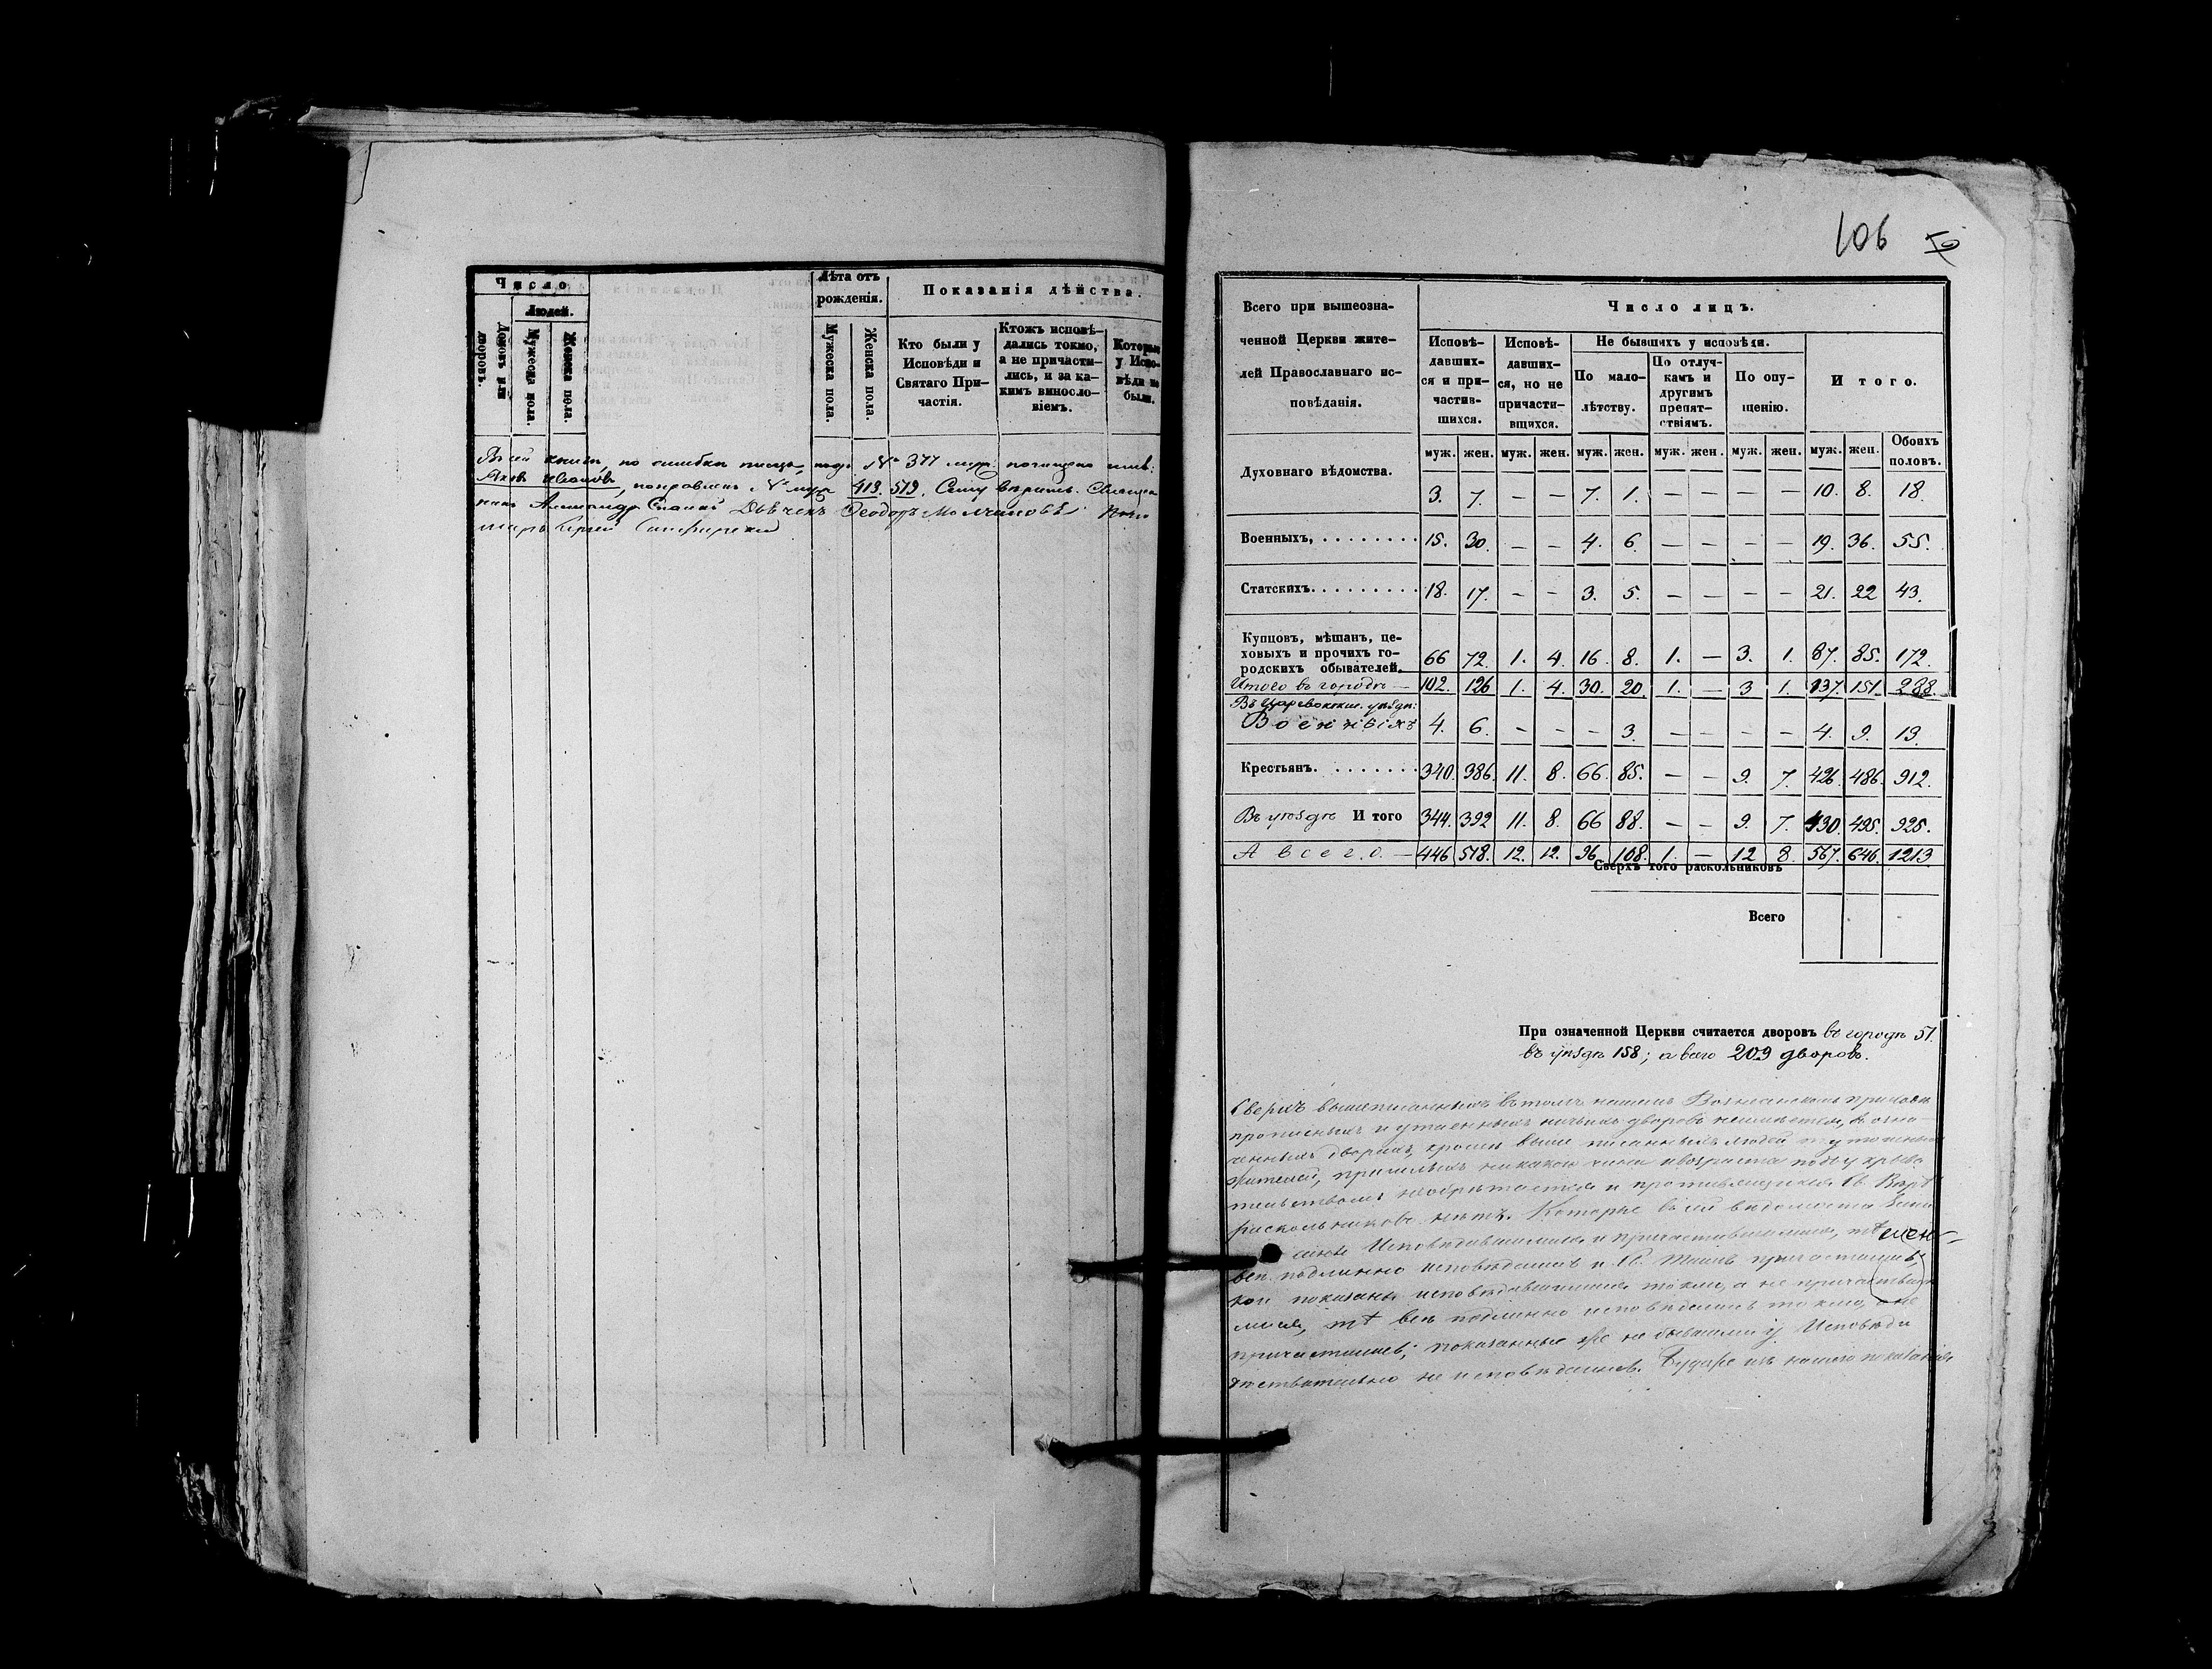 Число
Людей.
Домовъ или дворовъ.
Мужеска пола.
Женска пола.
Лѣта отъ рожденія.
Мужеска пола.
Женска пола.
Показанія дѣйства.
Кто были у Исповѣди и Святаго Причастія.
Ктожъ исповѣ-
дались токмо,
а не причасти-
лись, и за ка-
кимъ винослo-
віемъ.
Которые
у Испо-
вѣди не
были.
В сей книги, по ошибки писца, подъ № 377
Яковъ Ивановъ, поправленъ № 413. 519.
Александръ Спасскій Дьячекъ Ѳеодоръ Молчановъ
106
Всего при вышеозна-
ченной Церкви жите-
лей Православнаго ис-
повѣданія.
Число лицъ.
Исповѣ-
давших-
ся и при-
частив-
шихся.
Исповѣ-
давших-
ся, но не
причасти-
вшихся.
Не бывшихъ у исповѣди.
По мало-
лѣтству.
По отлуч-
камъ и
другимъ
препят-
ствіямъ.
По опу-
щенію.
Итого.
муж. жен. муж. жен. муж. жен. муж. жен. муж. жен. муж. жен. Обоихъ половъ.
Духовнаго вѣдомства. 3. 7. — — 7. 1. — — — — 10. 8. 18.
Военныхъ, 15. 30. — — 4. 6. — — — — 19. 36. 55.
Статскихъ. 18. 17. — — 3. 5. — — — — 21. 22 43.
Купцовъ, мѣщанъ, це-
ховыхъ и прочихъ го-
родскихъ обывателей. 66 72. 1. 4. 16. 8. 1. — 3. 1. 87. 85. 172.
Итого въ городѣ — 102. 126 1. 4. 30. 20. 1. — 3 1. 137. 151. 288.
Въ уѣздѣ:
Военныхъ 4. 6. — — — 3. — — — — 4. 9. 13.
Крестьянъ. 340. 386. 11. 8. 66. 85. — — 9. 7. 426. 486. 912.
Въ уѣздѣ Итого 344. 392 11. 8. 66 88. — — 9. 7. 430. 495. 925.
А всего. — 446 518. 12. 12. 96. 108. 1. — 12 8. 567. 646. 1213
Сверхъ того раскольниковъ
Всего
При означенной Церкви считается дворовъ въ городѣ 51.
въ уѣздѣ 158; а всего 209 дворовъ.
Сверхъ вышеписанныхъ в томъ нашемъ Вознесенскомъ приходѣ
прописныхъ и утаенныхъ дворовъ неимѣется, в озна
ченныхъ дворахъ, кромѣ выше писанныхъ людей
жителей, пришлыхъ никакого чина и возраста подъ укрыва
тельствомъ необрѣтается и противящихся Св. Вѣрѣ
раскольниковъ нѣтъ. Которые в сей вѣдомости
Исповѣдавшимися и причастившимися, тѣ
всѣ подлинно исповѣдались и Св. Таинъ причастились,
кои показаны исповѣдавшимися токмо, а не причастивши
мися, тѣ всѣ подлинно исповѣдались токмо, а не
причастились; показанные же не бывшими у Исповѣди
дѣствительно не исповѣдались. Буде же изъ нашего показанія